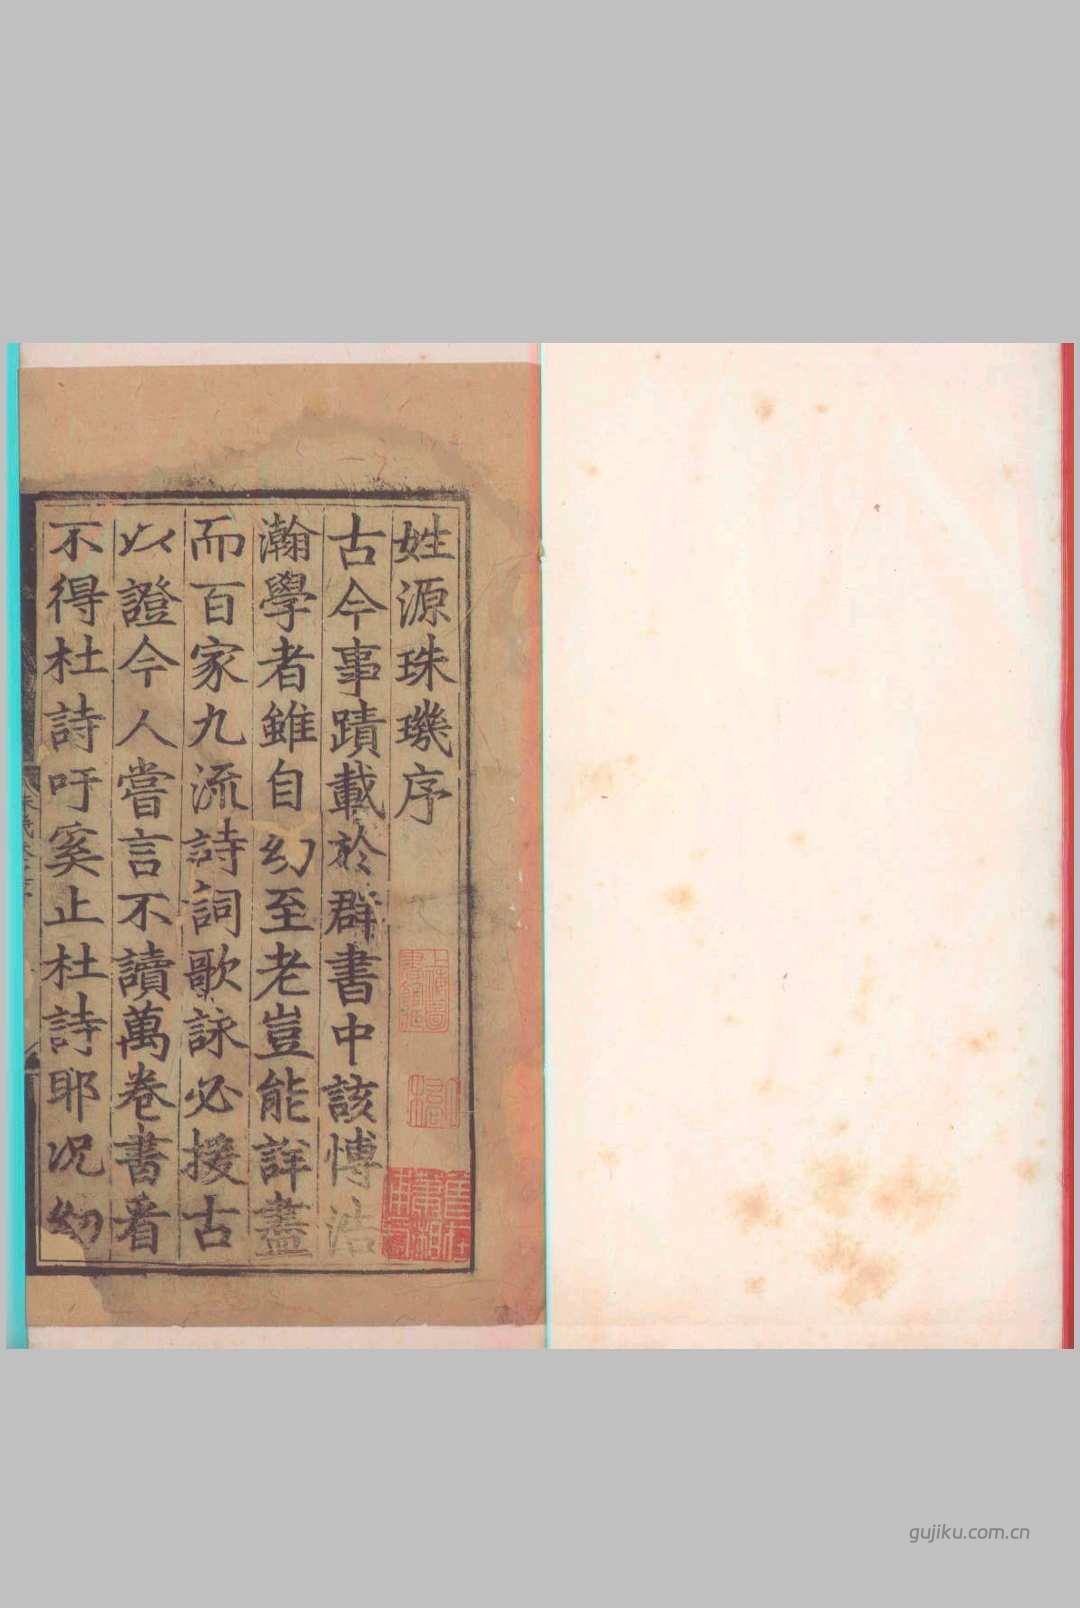 姓源珠璣序
古今事蹟載於群書中該愽浩
瀚學者雖自幼至老豈能詳盡
而百家九流詩詞歌詠必援古
以證今人嘗言不讀萬卷書看
不得杜詩吁奚止杜詩耶况幼
gujiku.com.cn